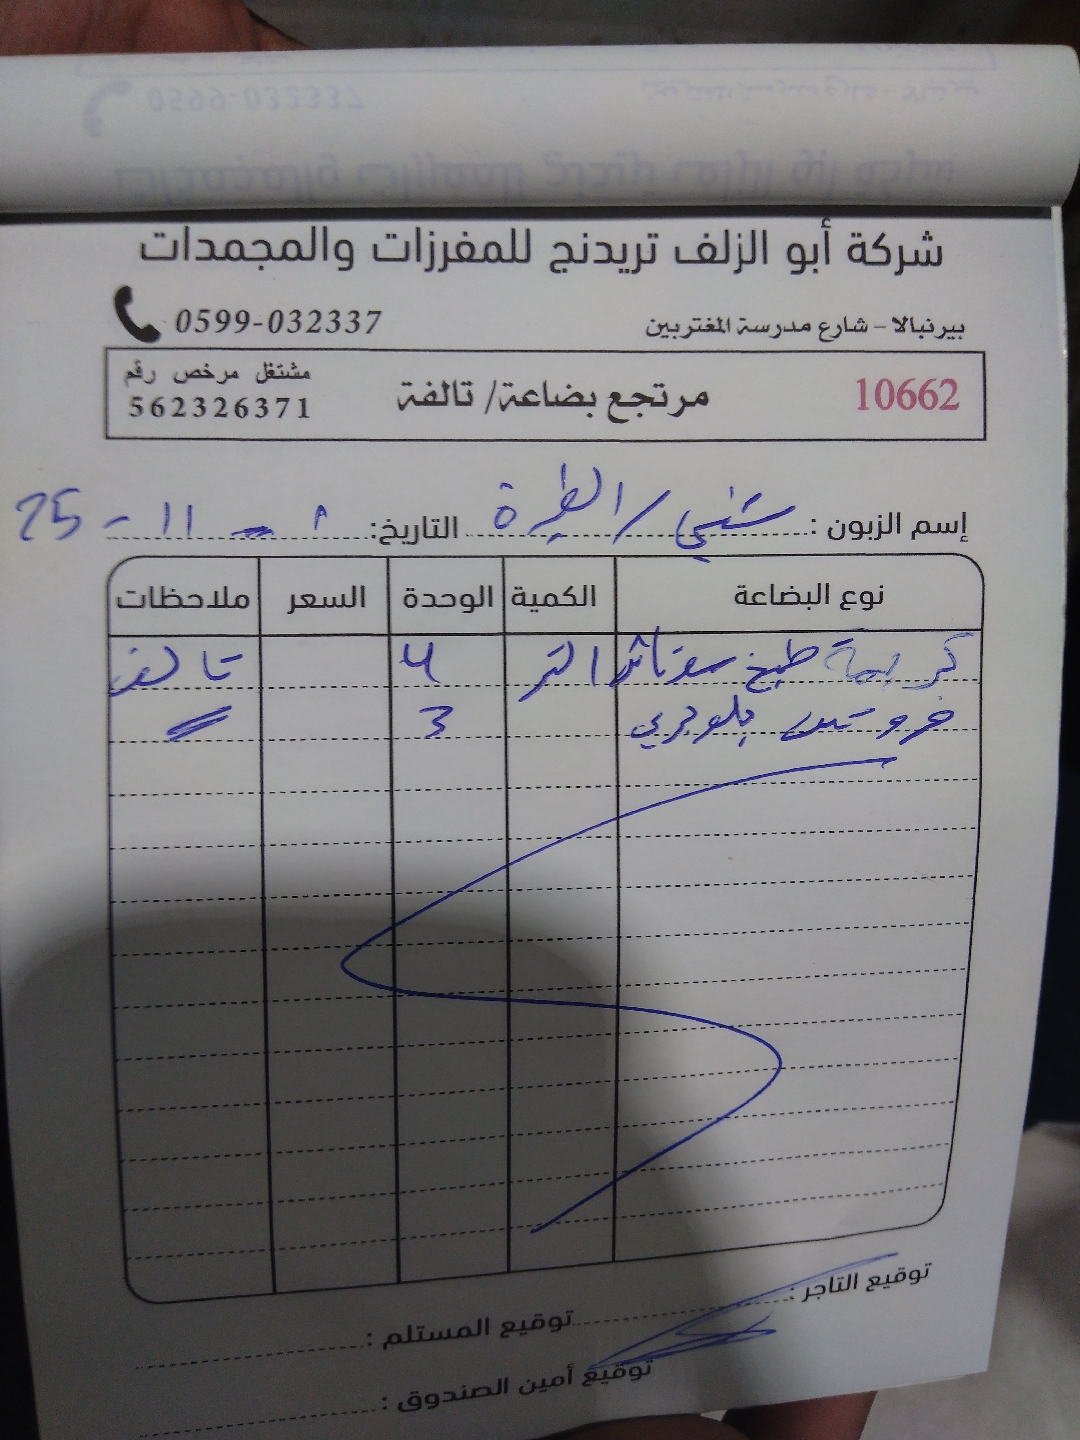 شركة أبو الزلف تريدنج للمفرزات والمجمدات
بيرنبالا - شارع مدرسة المغتربين 0599-032337
10662 مرتجع بضاعة/ تالفة مشتغل مرخص رقم 562326371
إسم الزبون : / الطيرة التاريخ: ١ - 11 - 25
نوع البضاعة الكمية الوحدة السعر ملاحظات
كريمة طبخ التر 4 تالف
فروتس بلوبري 3 〃
توقيع التاجر : توقيع المستلم :
توقيع أمين الصندوق :